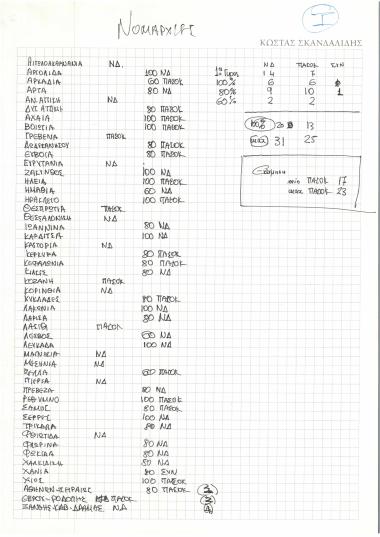 ΝΟΜΑΡΧΙΕΣ
I
ΚΩΣΤΑΣ ΣΚΑΝΔΑΛΙΔΗΣ
ΑΙΤΩΛΟΑΚΑΡΝΑΝΙΑ ΝΔ.
ΑΡΓΟΛΙΔΑ 100 ΝΔ
ΑΡΚΑΔΙΑ 60 ΠΑΣΟΚ
ΑΡΤΑ 80 ΝΔ
ΑΝ. ΑΤΤΙΚΗ ΝΔ
ΔΥΤ. ΑΤΤΙΚΗ 80 ΠΑΣΟΚ
ΑΧΑΙΑ 100 ΠΑΣΟΚ
ΒΟΙΩΤΙΑ 100 ΠΑΣΟΚ
ΓΡΕΒΕΝΑ ΠΑΣΟΚ
ΔΩΔΕΚΑΝΗΣΟΥ 80 ΠΑΣΟΚ
ΕΥΒΟΙΑ 80 ΠΑΣΟΚ
ΕΥΡΥΤΑΝΙΑ ΝΔ
ΖΑΚΥΝΘΟΣ 100 ΝΔ
ΗΛΕΙΑ 100 ΠΑΣΟΚ
ΗΜΑΘΙΑ 60 ΝΔ
ΗΡΑΚΛΕΙΟ 100 ΠΑΣΟΚ
ΘΕΣΠΡΩΤΙΑ ΠΑΣΟΚ
ΘΕΣΣΑΛΟΝΙΚΗ ΝΔ
ΙΩΑΝΝΙΝΑ 80 ΝΔ
ΚΑΡΔΙΤΣΑ 100 ΝΔ
ΚΑΣΤΟΡΙΑ ΝΔ
ΚΕΡΚΥΡΑ 80 ΠΑΣΟΚ
ΚΕΦΑΛΟΝΙΑ 80 ΠΑΣΟΚ
ΚΙΛΚΙΣ 80 ΝΔ
ΚΟΖΑΝΗ ΠΑΣΟΚ
ΚΟΡΙΝΘΙΑ ΝΔ
ΚΥΚΛΑΔΕΣ 80 ΠΑΣΟΚ
ΛΑΚΩΝΙΑ 100 ΝΔ
ΛΑΡΙΣΑ 80 ΝΔ
ΛΑΣΙΘΙ ΠΑΣΟΚ
ΛΕΣΒΟΣ 60 ΝΔ
ΛΕΥΚΑΔΑ 100 ΝΔ
ΜΑΓΝΗΣΙΑ ΝΔ
ΜΕΣΗΝΙΑ ΝΔ
ΠΕΛΛΑ 60 ΠΑΣΟΚ
ΠΙΕΡΙΑ ΝΔ
ΠΡΕΒΕΖΑ 80 ΝΔ
ΡΕΘΥΜΝΟ 100 ΠΑΣΟΚ
ΣΑΜΟΣ 80 ΠΑΣΟΚ
ΣΕΡΡΕΣ 100 ΝΔ
ΤΡΙΚΑΛΑ 80 ΝΔ
ΦΘΙΩΤΙΔΑ ΝΔ
ΦΛΩΡΙΝΑ 80 ΝΔ
ΦΩΚΙΔΑ 80 ΝΔ
ΧΑΛΚΙΔΙΚΗ 80 ΝΔ
ΧΑΝΙΑ 80 ΣΥΝ
ΧΙΟΣ 100 ΠΑΣΟΚ
ΑΘΗΝΩΝ-ΠΕΙΡΑΙΩΣ 80 ΠΑΣΟΚ
ΕΒΡΟΥ-ΡΟΔΟΠΗΣ ΠΑΣΟΚ
ΞΑΝΘΗΣ-ΚΑΒ-ΔΡΑΜΑΣ ΝΔ
ΝΔ ΠΑΣΟΚ ΣΥΝ
1ος Γύρος 14 7
100% 6 6
80% 9 10 1
60% 2 2
100% 20 13
31 25
ΠΑΣΟΚ 17
ΠΑΣΟΚ 23